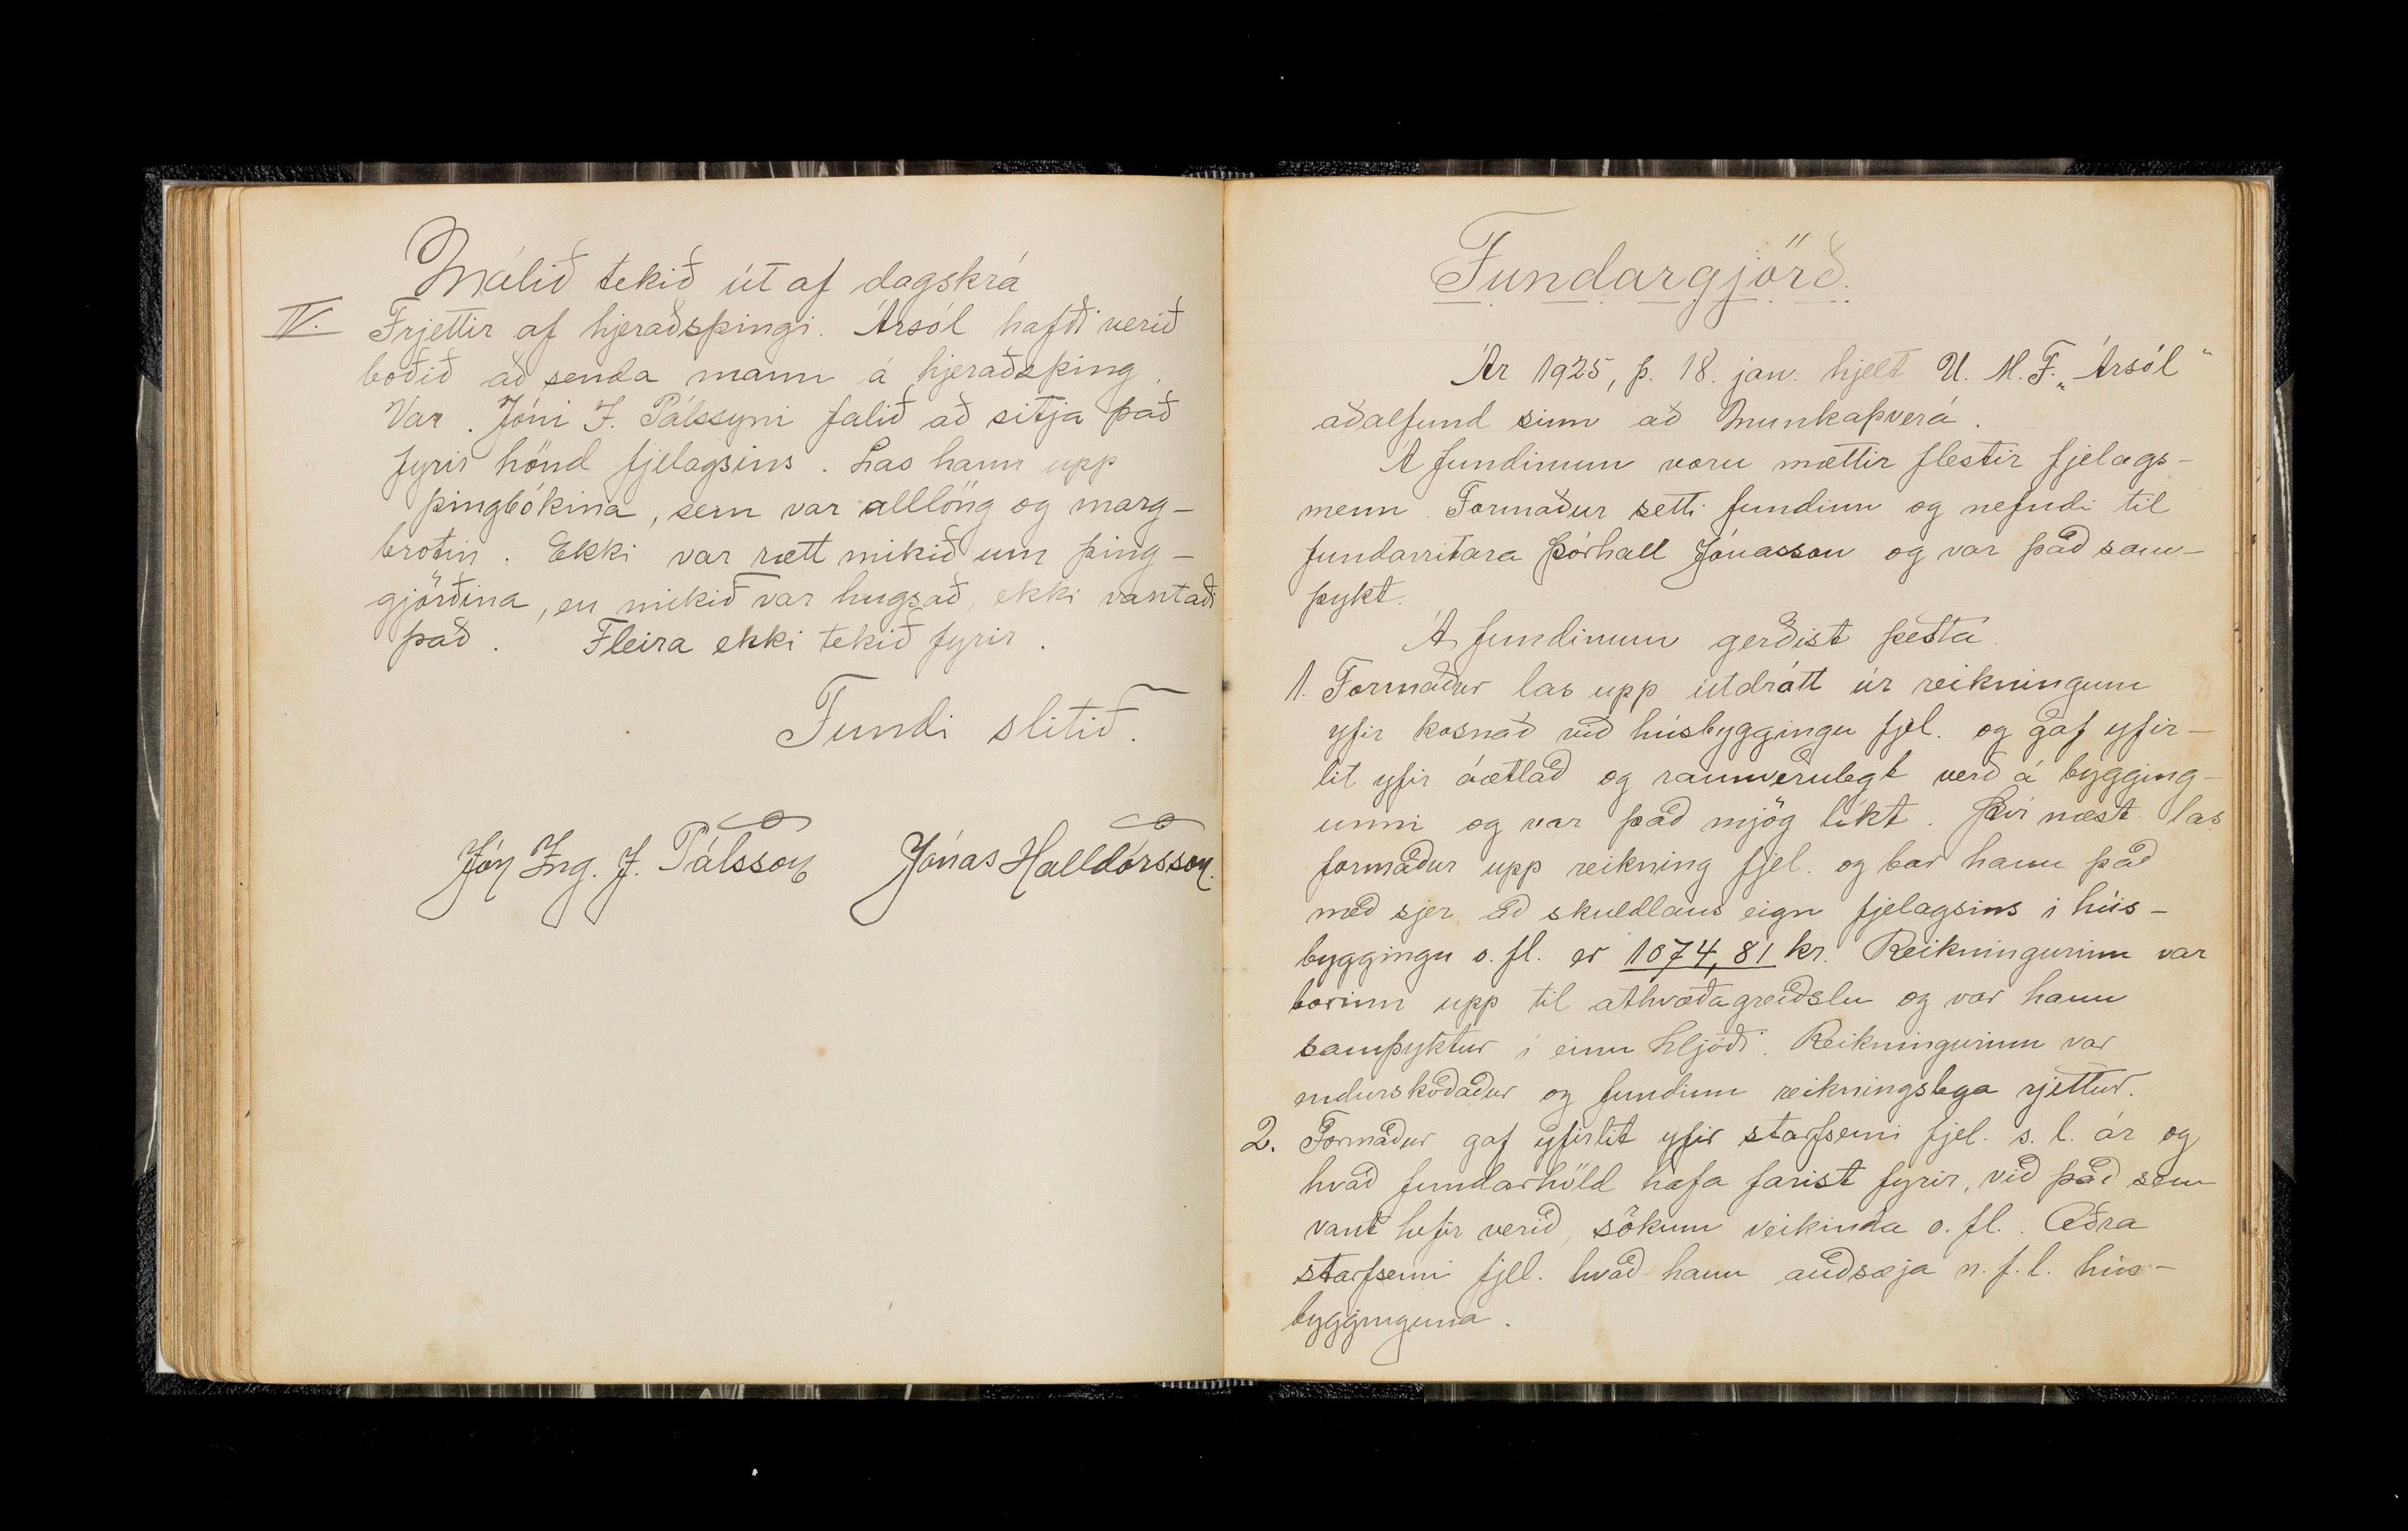 Málið tekið út af dagskrá
IV. Frjettir af hjeraðsþingi. Ársól hafði verið
boðið að senda mann á hjeraðsþing.
Var Jóni J. Pálssyni falið að sitja það
fyrir hönd fjelagsins. Las hann upp
þingbókina, sem var alllöng og marg-
brotin. Ekki var rætt mikið um þing-
gjörðina, en mikið var hugsað, ekki vantaði
það. Fleira ekki tekið fyrir.
Fundi slitið.
Jón Ing. J. Pálsson Jónas Halldórsson.
Fundargjörð.
Ár 1925, þ. 18. jan. hjelt U. M. F. „Ársól“
aðalfund sinn að Munkaþverá.
Á fundinum voru mættir flestir fjelags-
menn. Formaður setti fundinn og nefndi til
fundarritara Þórhall Jónasson og var það sam-
þykt.
Á fundinum gerðist þetta
1. Formaður las upp útdrátt úr reikningum
yfir kosnað við húsbyggingu fjel. og gaf yfir-
lit yfir áætlað og raunverulegt verð á bygging-
unni og var það mjög líkt. Því næst las
formaður upp reikning fjel. og bar hann það
með sjer að skuldlaus eign fjelagsins í hús-
byggingu o. fl. er 1074,81 kr. Reikningurinn var
borinn upp til atkvæðagreiðslu og var hann
samþyktur í einu hljóði. Reikningurinn var
endurskoðaður og fundinn reikningslega rjettur.
2. Formaður gaf yfirlit yfir starfsemi fjel. s. l. ár og
hvað fundarhöld hafa farist fyrir, við það sem
vant hefir verið, sökum veikinda o. fl. Aðra
starfsemi fjel. kvað hann auðsæja n. f. l. hús-
bygginguna.